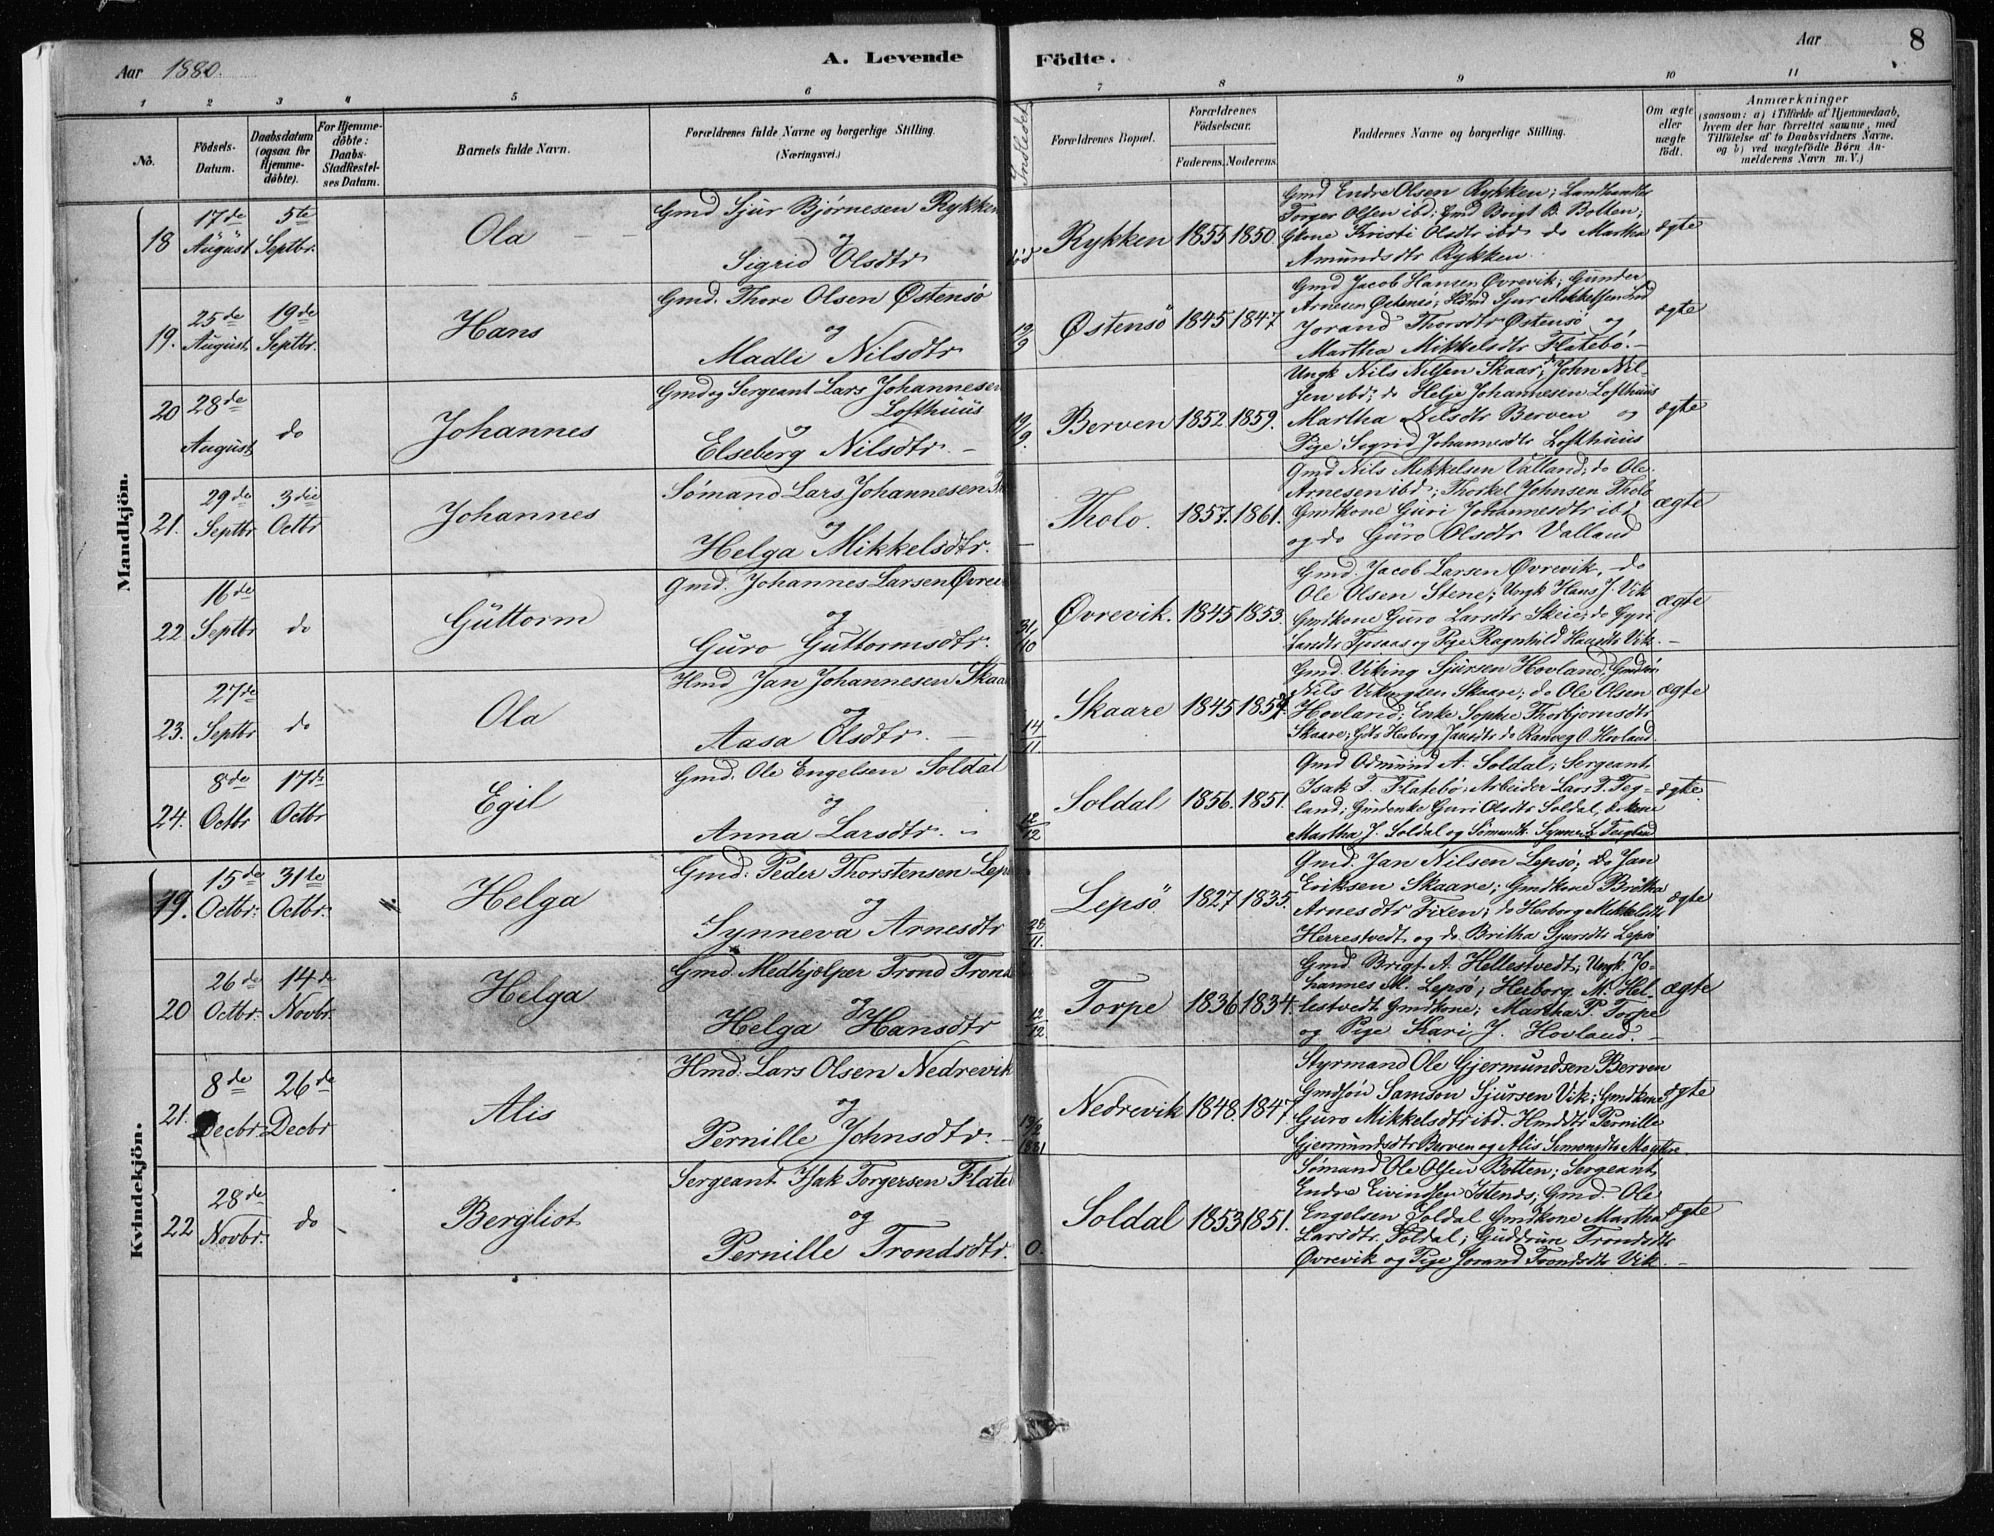 Aar 1880.
A. Levende
Födte.
Aar
8
1 2 3 4 5 6 7 8 9 10 11
No.
Födsels-Datum.
Daabsdatum (ogsaa for Hjemme-döbte).
For Hjemme-döbte: Daabs-Stadfæstel-ses Datum.
Barnets fulde Navn.
Forældrenes fulde Navne og borgerlige Stilling.
(Næringsvei.)
Indledet
Forældrenes Bopæl.
Forældrenes Födselsaar.
Faderens. Moderens.
Faddernes Navne og borgerlige Stilling.
Om ægte eller uægte födt.
Anmærkninger
(saasom: a) i Tilfælde af Hjemmedaab, hvem der har forrettet samme, med Tilföielse af to Daabsvidners Navne, og b) ved uægtefödte Børn An-melderens Navn m. V.)
Mandkjön.
18 17de August 5te Septbr. Ola
Gmd Sjur Bjørnesen Rykken
og
Sigrid Olsdtr
Rykken 1855 1850.
Gmd Endre Olsen Rykken; Landhandler
Torger Olsen ibd; Gmd Brigt B. Botten;
Gkone Kristi Olsdtr ibd do Martha
Amundsdtr Rykken.
ægte
19. 25de August 19de Septbr. Hans
Gmd. Thore Olsen Østensö
og
Madli Nilsdtr
19/9 Østensö 1845 1847
Gmd Jacob Hansen Øvrevik; Gunder
Arnesen Østensö; Hmd Sjur Mikkelsen
Jorand Thorsdtr Østensö og
Martha Mikkelsdtr Flatebö.-
ægte
20 28de August do Johannes
Gmd og Sergeant Lars Johannesen
Lofthuus
og
Elseberg Nilsdtr. -
19/9. Berven 1852 1859.
Ungk Nils Nilsen Skaar, John Nil-
sen ibd; do Helje Johannesen Lofthuus
Martha Nilsdtr Berven og
Pige Sigrid Johannesdtr Lofthuus
ægte
21. 29de Septbr 3die Octbr Johannes
Sømand Lars Johannesen
og
Helga Mikkelsdtr.
Tholo. 1857. 1861.
Gmd Nils Mikkelsen Valland; do Ole
Arnesen ibd; Thorkel Johnsen Tholo
Gmdkone Guri Johannesdtr ibd
og do Guro Olsdtr Valland
ægte
22. 16de Septbr do Guttorm
Gmd. Johannes Larsen Øvrevik
og
Guro Guttormsdtr.
31/10 Øvrevik. 1845 1853.
Gmd. Jacob Larsen Øvrevik, do
Ole Olsen Stene; Ungk Hans J. Vik
Gmdkone Guro Larsdtr Skeie; do Gyri
Larsdtr og Pige Ragnhild Hansdtr Vik. -
ægte
23. 27de Septbr do Ola
Hmd Jan Johannesen Skaare
og
Aasa Olsdtr. -
14/11. Skaare 1845
Gmd. Viking Sjursen Hovland, Gmdsön
Nils Vikingsen Skaare; do Ole Olsen
Hovland; Enke Sophie Thorbjørnsdtr
Skaare; Herborg Jansdtr do Ranveg O. Hovland.
ægte
24. 8de Octbr 17de Octbr Egil
Gmd. Ole Engelsen Soldal
og
Anna Larsdtr. -
12/12 Soldal 1856. 1851.
Gmd Odmund A. Soldal; Sergeant
Isak T. Flatebø; Arbeider Lars T. Teg-
land; Guri Olsdtr Soldal,
Martha J. Soldal og
ægte.
Kvindekjön.
19. 15de Octbr: 31te Octbr: Helga
Gmd: Peder Thorstensen Lepsö
og
Synneva Arnesdtr
28/11. Lepsö 1827 1835.
Gmd. Jan Nilsen Lepsö; do Jan
Eriksen Skaare; Gmdkone Britha
Arnesdtr Fixen; do Herborg Mikkelsdtr
Herrestvedt og do Britha Sjursdtr Lepsö
ægte
20 26de Octbr: 14de Novbr. Helga
Gmd. Medhjælper Trond Trond
og
Helga Hansdtr
12/12. Torpe 1836 1834.
Gmd Brigt A. Hellestvedt; Ungk. Jo-
hannes M. Lepsö; Herborg M. Hel-
lestvedt Gmdkone; Martha P. Torpe
og Pige Kari J. Hovland. -
ægte
21. 8de Decbr 26de Decbr Alis
Hmd: Lars Olsen Nedrevik
og
Pernille Johnsdtr. -
13/2 1881 Nedrevik 1848. 1847.
Styrmand Ole Gjermundsen Berven
Gmdsön Samson Sjursen Vik; Gmdkone
Guro Mikkelsdtr ibd. Hmddtr Pernille
Gjermundsdtr Berven og Alis Simonsdtr
ægte
22 28de Novbr. do Bergliot
Sergeant Isak Torgersen Flatebö
og
Pernille Trondsdtr.
0. Soldal 1853 1851.
Sømand Ole Olsen Botten; Sergeant
Endre Eivindsen Gmd. Ole
Engelsen Soldal Gmdkone Martha
Larsdtr. Soldal; Guddrun Trondsdtr
Øvrevik og Pige Jorand Trondsdtr Vik. -
ægte